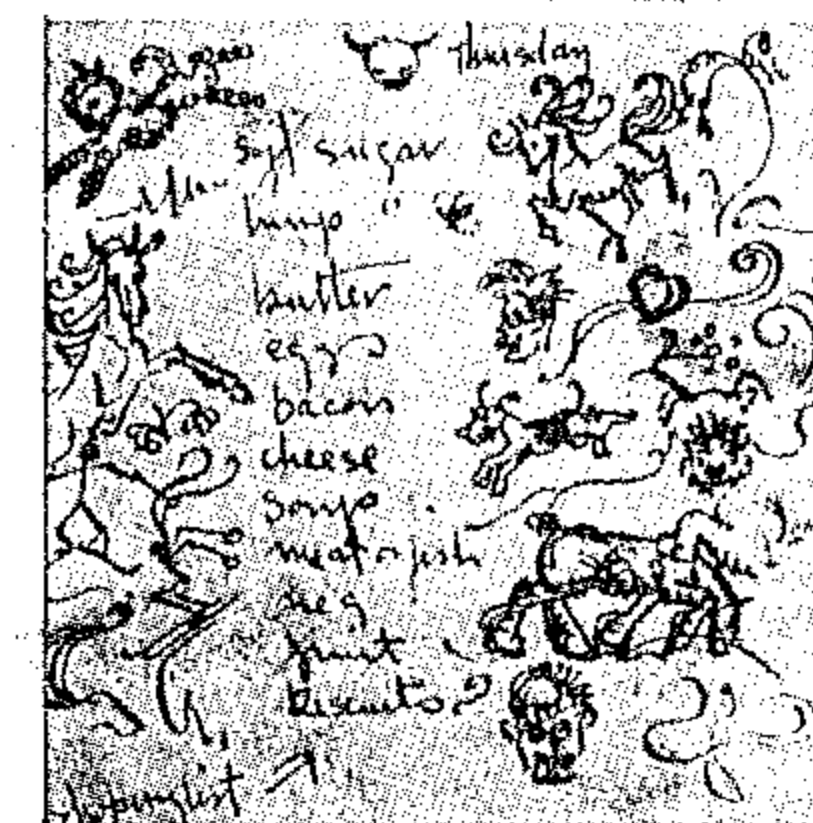 Thursday
soft sugar
lump "
butter
eggs
bacon
cheese
soup
meat or fish
veg
fruit
biscuits
shopping list